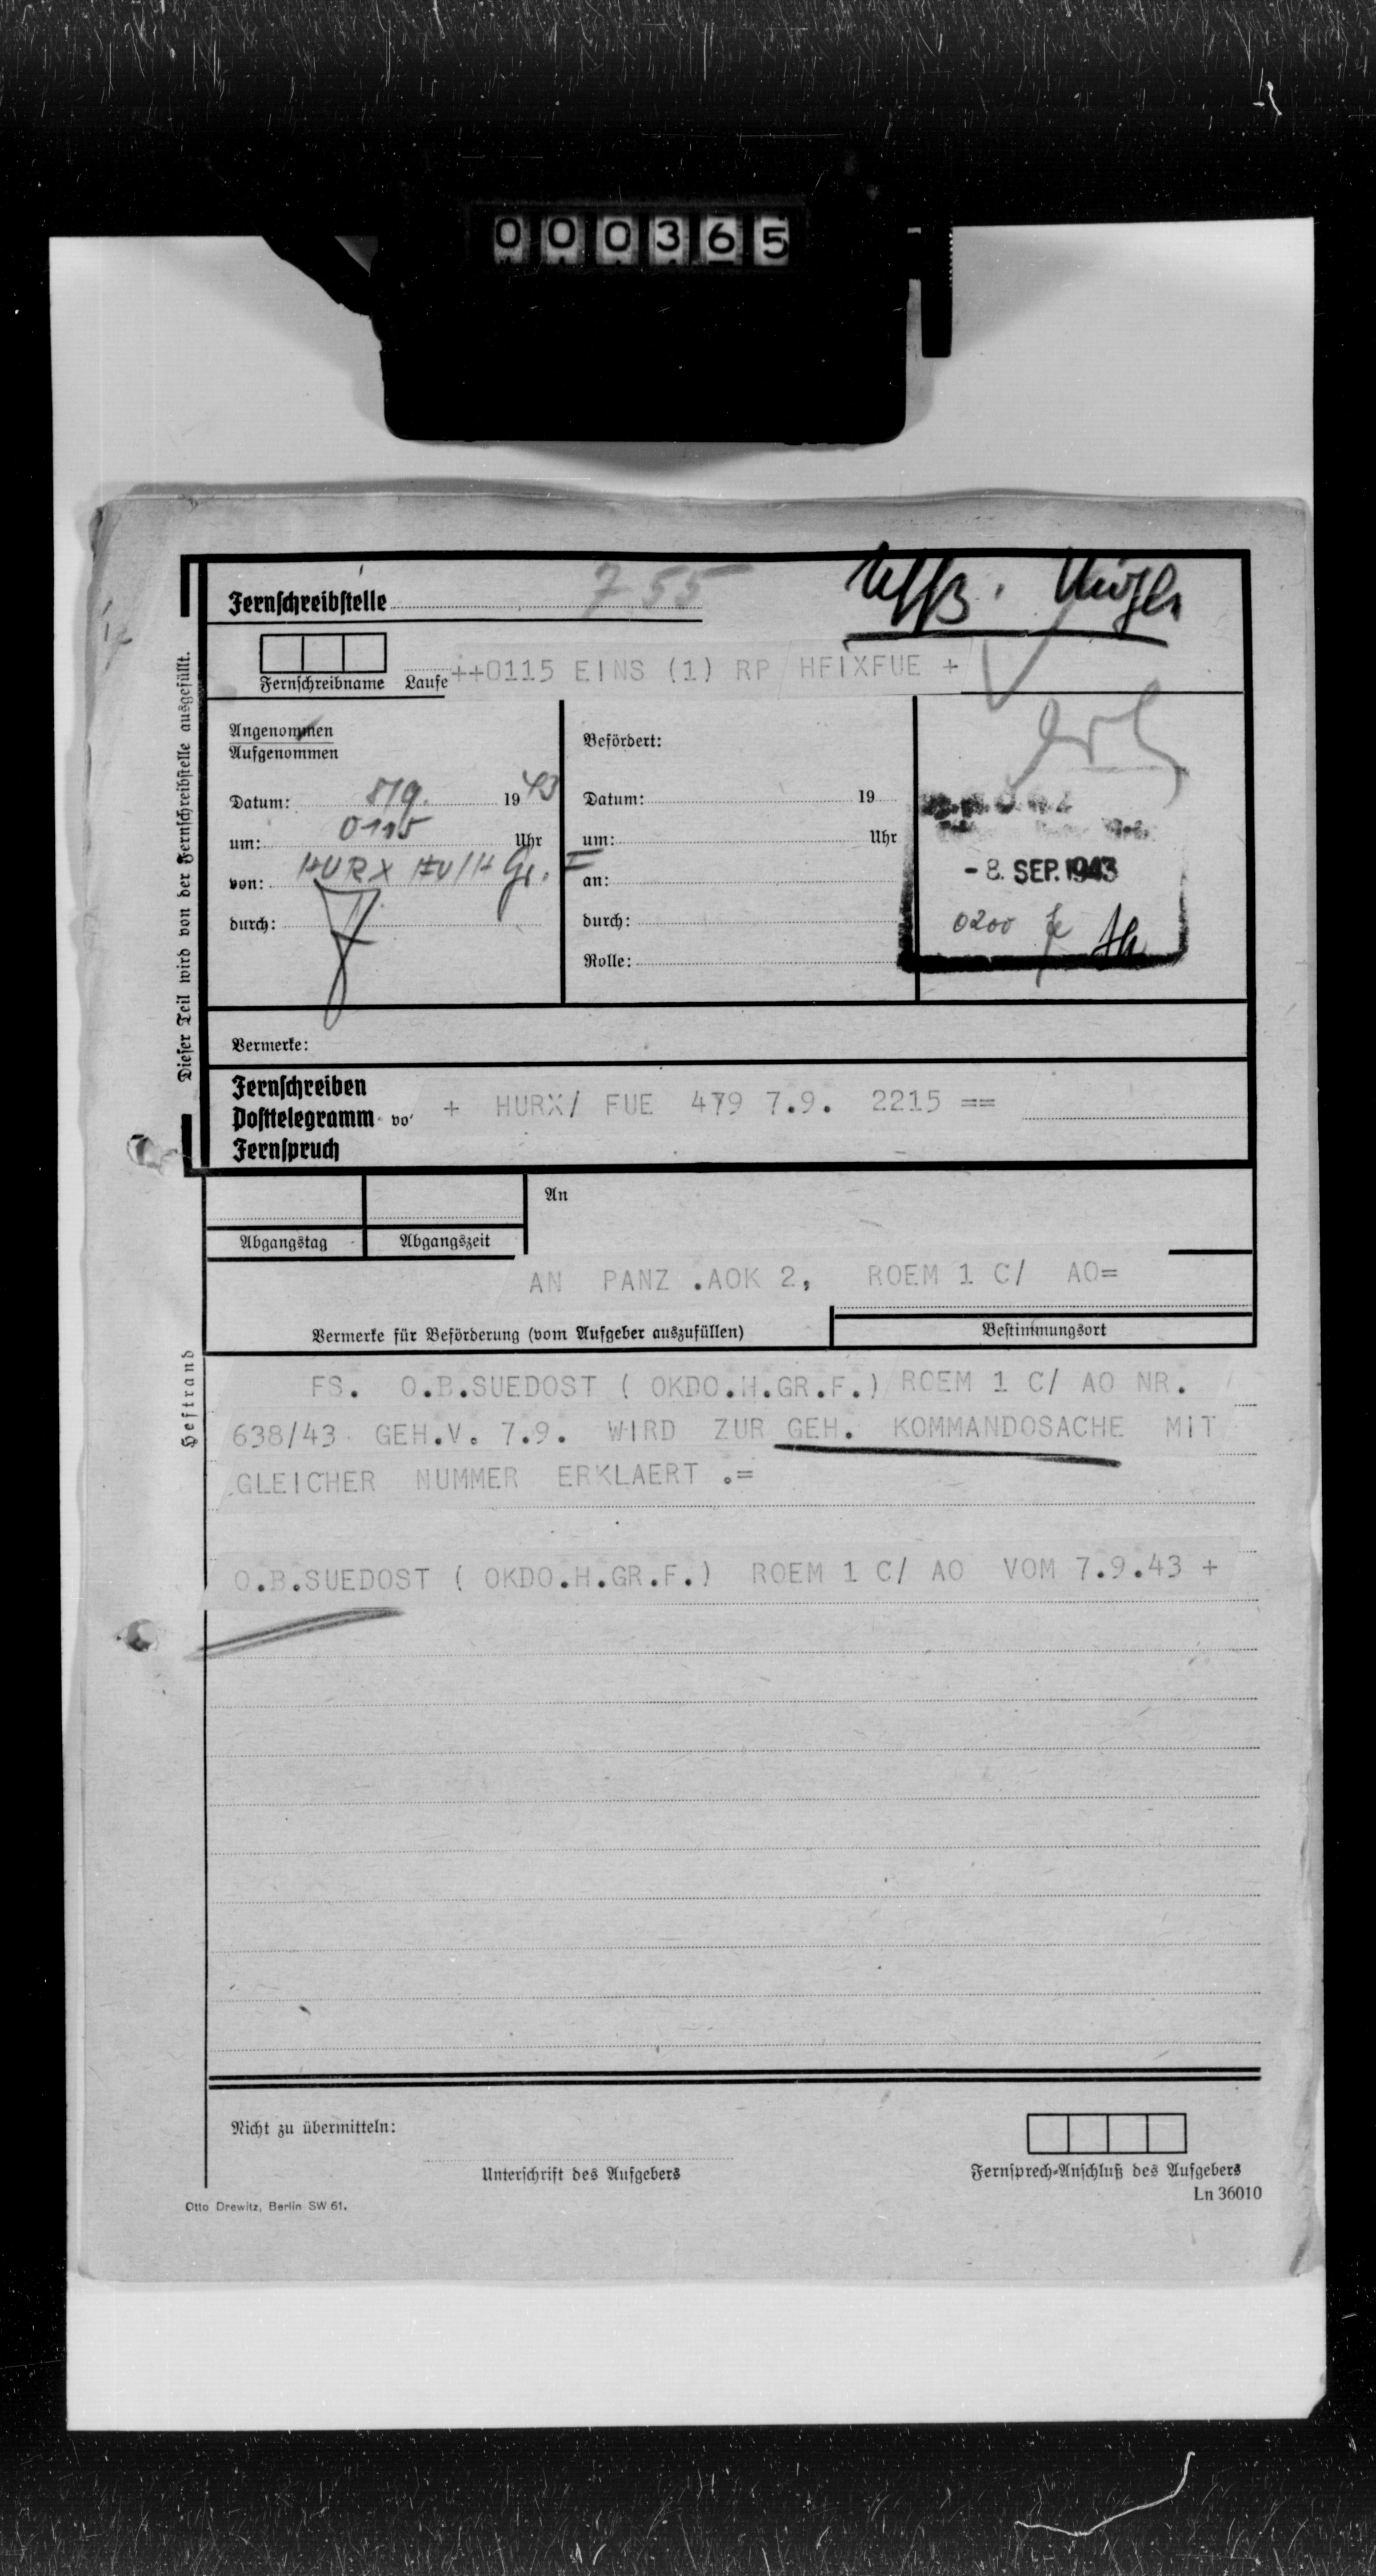 000365
Fernschreibstelle 755
Uffz.
++0115 EINS (1) RP HFIXFUE +
Fernschreibname Laufe
Dieser Teil wird von der Fernschreibstelle ausgefüllt.
Angenommen
Aufgenommen
Datum: 8/9. 1943
um: 0115 Uhr
von: HURX
durch:
Befördert:
Datum: 19
um: Uhr
an:
durch:
Rolle:
- 8. SEP. 1943
0200
Vermerke:
Fernschreiben
Posttelegramm vo + HURX/ FUE 479 7.9. 2215 ==
Fernspruch
An
Abgangstag Abgangszeit
AN PANZ .AOK 2, ROEM 1 C/ AO=
Vermerke für Beförderung (vom Aufgeber auszufüllen)
Bestimmungsort
Heftrand
FS. O.B.SUEDOST ( OKDO.H.GR.F.) ROEM 1 C/ AO NR.
638/43 GEH.V. 7.9. WIRD ZUR GEH. KOMMANDOSACHE MIT
GLEICHER NUMMER ERKLAERT .=
O.B.SUEDOST ( OKDO.H.GR.F.) ROEM 1 C/ AO VOM 7.9.43 +
Nicht zu übermitteln:
Unterschrift des Aufgebers
Fernsprech-Anschluß des Aufgebers
Ln 36010
Otto Drewitz, Berlin SW 61.